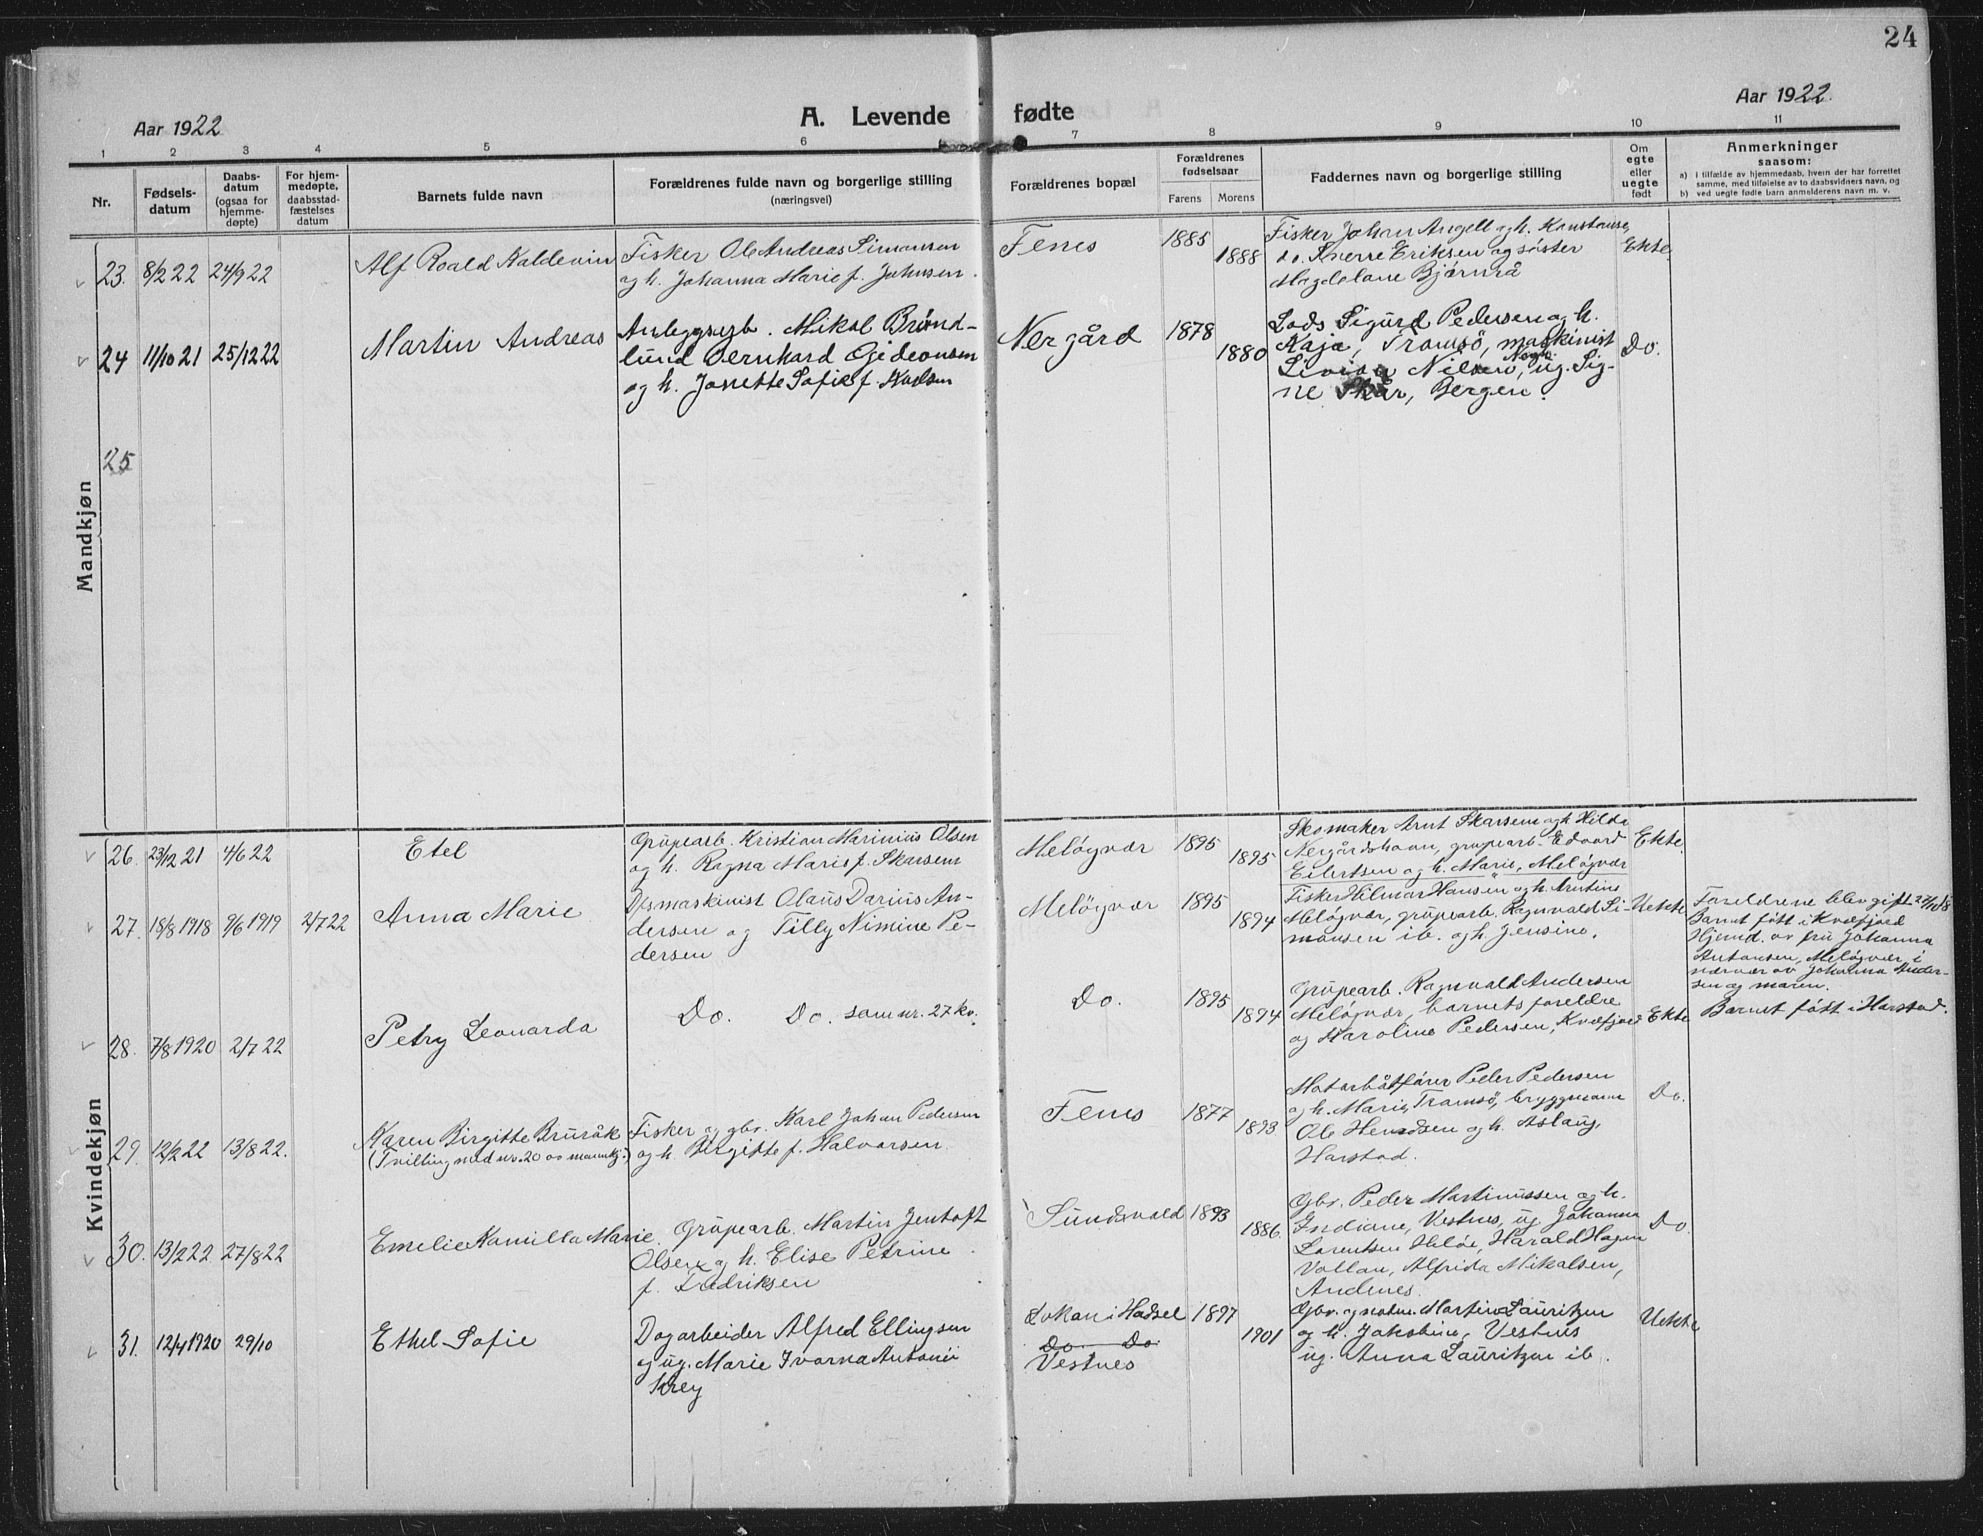 24
Aar 1922
A. Levende fødte
Aar 1922.
1 2 3 4 5 6 7 8 9 10 11
Nr.
Fødsels-
datum
Daabs-
datum
(ogsaa for
hjemme-
døpte)
For hjem-
medøpte,
daabsstad-
fæstelses
datum
Barnets fulde navn
Forældrenes fulde navn og borgerlige stilling
(næringsvei)
Forældrenes bopæl
Forældrenes
fødselsaar
Farens Morens
Faddernes navn og borgerlige stilling
Om
egte
eller
uegte
født
Anmerkninger
saasom:
a) I tilfælde av hjemmedaab, hvem der har forrettet
samme, med tilføielse av to daabsvidners navn, og
b) ved uegte fødte barn anmelderens navn m. v.
Mandkjøn
23. 8/2 22 24/9 22
Alf Roald Kaldevin
Fisker Ole Andreas Simonsen
og h. Johanna Marie f. Johnsen.
Fenes
1885
1888
Fisker Johan Angell og h. Konstanse,
do. Snerre Eriksen og søster
Magdalane Bjørnrå
Ekte
24 11/10 21 25/12 22
Martin Andreas
Anleggsarb. Mikal Brønd-
lund Bernhard Gideonsen
og h. Jonette Sofie f. Karlsen
Nergård
1878
1880
Lods Sigurd Pedersen og h.
Kaja, Tromsø, maskinist
Nilsen, ug. Sig-
ne Skår, Bergen.
Do.
25
Kvindekjøn
26. 23/12 21 4/6 22
Etel
Grubearb. Kristian Marinius Olsen
og h. Ragna Marie f. Skarsem
Meløyvær
1895
1895
Skomaker Arnt Skarsem og h. Hilda
Nergårdshavn, grubearb. Edvard
Eilertsen og h. Marie, Meløyvær
Ekte.
27. 18/8 1918 9/6 1919 2/7 22
Anna Marie
Dpsmaskinist Olaus Darius An-
dersen og Tilly Nimine Pe-
dersen
Meløyvær
1895
1894
Fisker Hilmar Hansen og h. Arntine
Meløyvær, grubearb. Ragnvald Si-
monsen ib. og h. Jensine.
Uekte
Foreldrene blev gift
Barnet født i Kvæfjord
Hjemd. av fru Johanna
Antonsen, Meløyvær, i
nærvær av Johanna Ander-
sen og moren.
28. 7/8 1920 2/7 22
Petry Leonarda
Do. Do. som nr. 27 kv.
Do.
1895
1894
Grubearb. Ragnvald Andersen
Meløyvær, barnets foreldre
og Karoline Pedersen, Kvæfjord
Ekte
Barnet født i Harstad.
29. 12/2 22 13/8 22.
Karen Birgitte Bruråk
(Tvilling med nr. 20 av mannkj.)
Fisker og gbr. Karl Johan Pedersen
og h. Birgitte f. Halvorsen.
Fenes
1877
1893
Motorbåtfører Peder Pedersen
og h. Marie, Tromsø, bryggemann
Ole Hendsen og h. Aslaug,
Harstad.
Do.
30. 13/2 22 27/8 22
Emelie Kamilla Marie.
Grubearb. Martin Jentoft
Olsen og h. Elise Petrine
f. Fredriksen
Sundsvold
1893
1886.
Gbr. Peder Martinussen og h.
Indiane, Vestnes, ug Johanna
Lorentsen Meløe, Harald Hagen
Vollan, Alfrida Mikalsen,
Andenes.
Do.
31. 12/4 1920 29/10
Ethel Sofie
Dagarbeider Alfred Ellingsen
og ug. Marie Ivarna Antonie
Krey
Lokan i Hadsel
Do Do
Vestnes
1897
1901
Gbr. og Martin Lauritzen
og h. Jakobine, Vestnes
ug. Anna Lauritzen ib.
Uekte